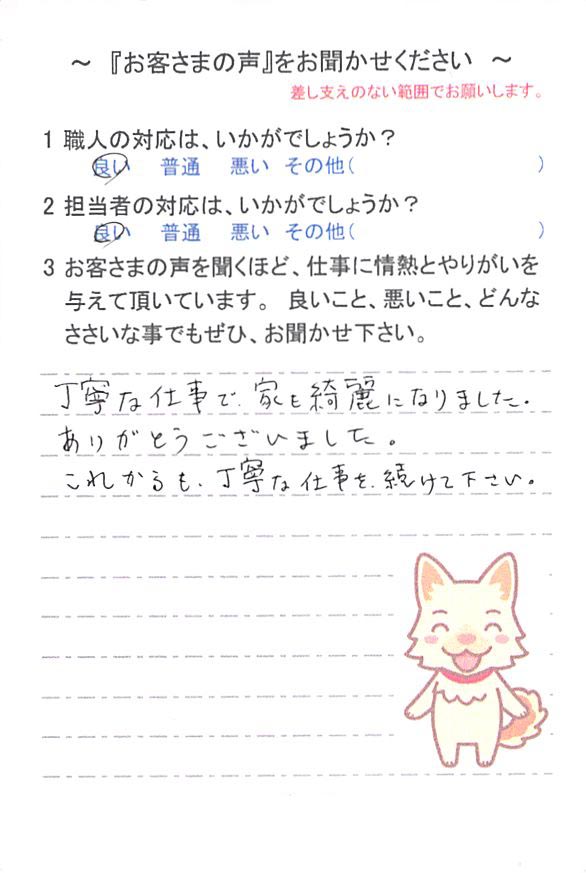 ～ 『お客さまの声』をお聞かせください ～
差し支えのない範囲でお願いします。
1 職人の対応は、いかがでしょうか？
良い 普通 悪い その他( )
2 担当者の対応は、いかがでしょうか？
良い 普通 悪い その他( )
3 お客さまの声を聞くほど、仕事に情熱とやりがいを
与えて頂いています。 良いこと、悪いこと、どんな
ささいな事でもぜひ、お聞かせ下さい。
丁寧な仕事で、家も綺麗になりました。
ありがとうございました。
これからも、丁寧な仕事を、続けて下さい。